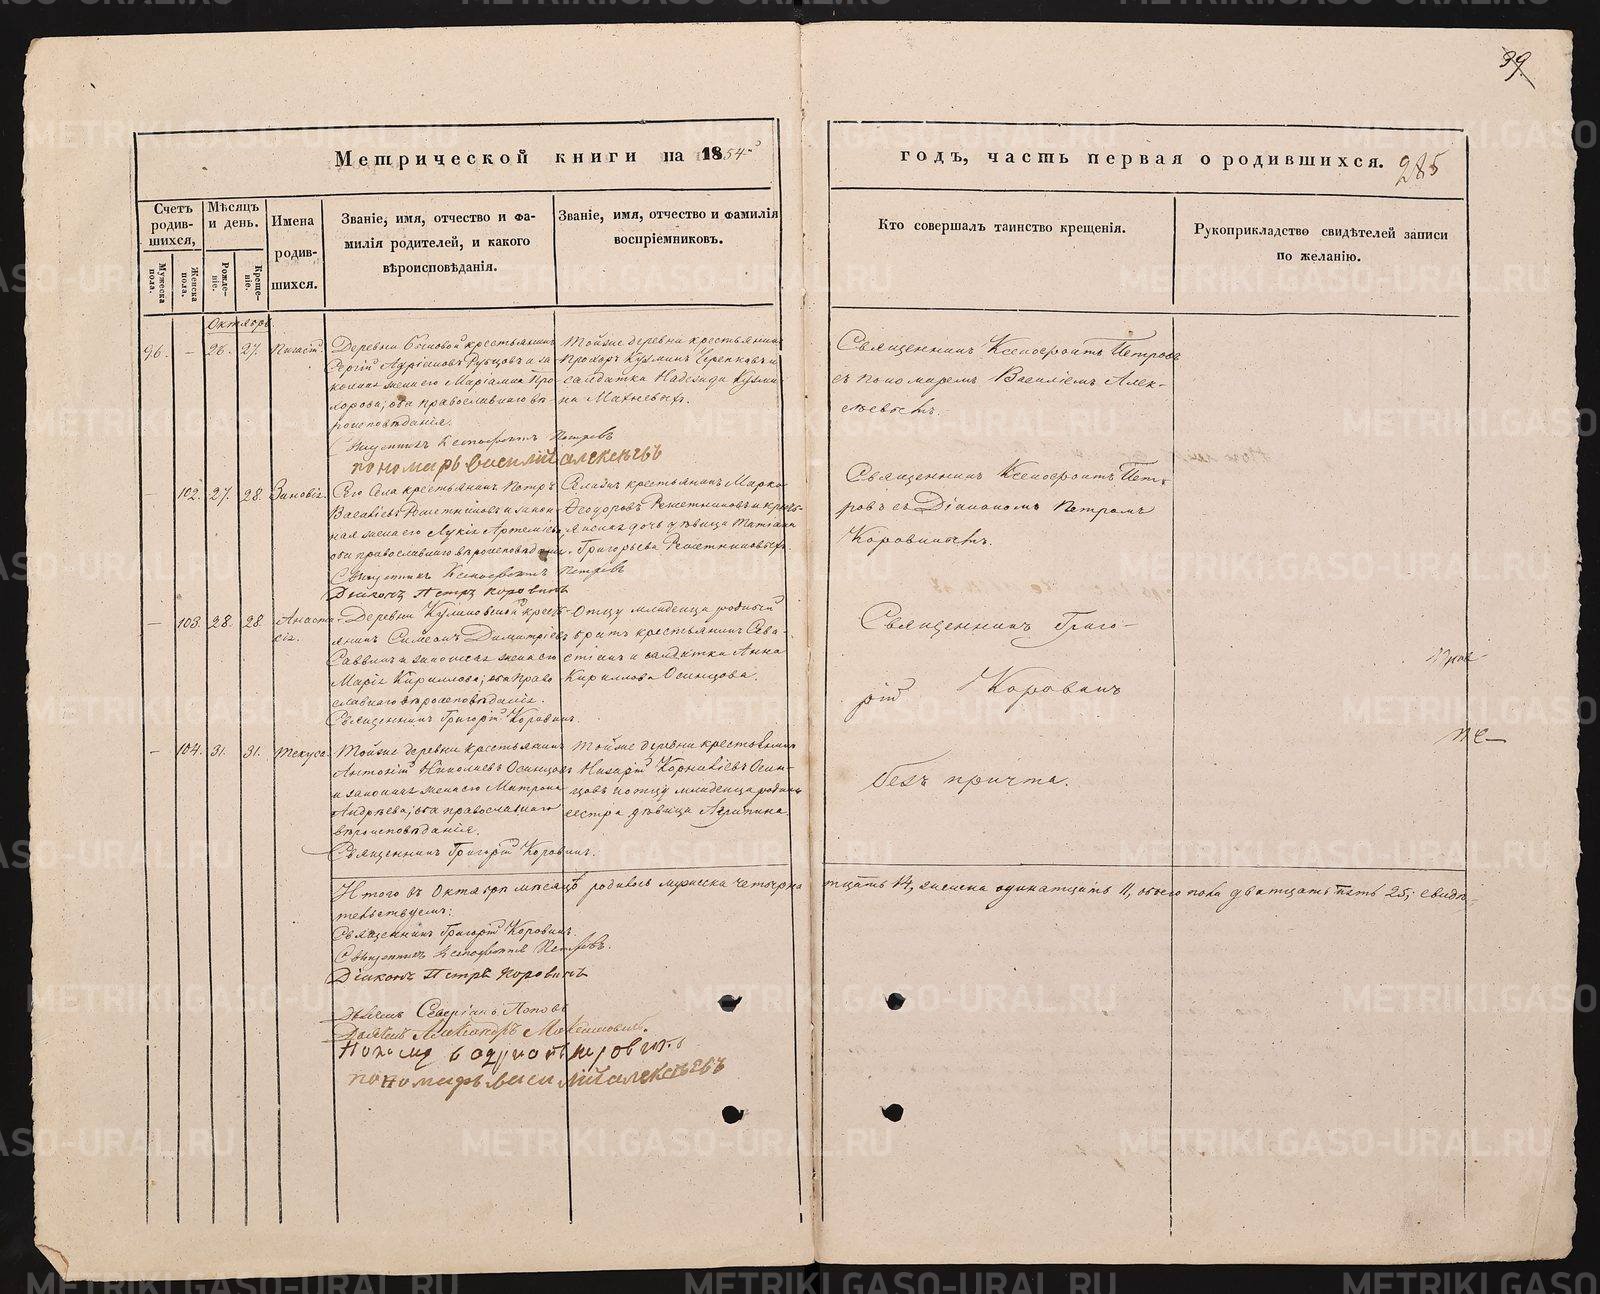 39.
Метрической книги на 1854й
годъ, часть первая о родившихся. 285
Счетъ родив-шихся,
Мужеска пола.
Женска пола.
Мѣсяцъ и день.
Рожде-ніе.
Креще-ніе.
Имена родив-шихся.
Званіе, имя, отчество и фа-
милія родителей, и какого
вѣроисповѣданія.
Званіе, имя, отчество и фамилія
воспріемниковъ.
Кто совершалъ таинство крещенія.
Рукоприкладство свидѣтелей записи
по желанію.
Октябрь
96. – 26. 27.
Деревни крестьянинъ
Сергій Адріановъ Рубцовъ и за
конная жена его Маріамна Про
хорова; оба православнаго вѣ-
роисповѣданія.
Священникъ Ксенофонтъ Петровъ
пономарь василій алексѣевъ
Тойже деревни крестьянинъ
Прохоръ Кузминъ Черепковъ и
солдатка Надежда Кузми
на Махневыхъ.
Священникъ Ксенофонтъ Петровъ
съ пономаремъ Василіемъ Алек-
сѣевымъ.
– 102. 27. 28. Зиновія.
Сего Села крестьянинъ Петръ
Василіевъ Решетниковъ и закон
ная жена его Лукія Артеміева
оба православнаго вѣроисповѣданія.
Священникъ Ксенофонтъ Петровъ
Діаконъ Петръ Коровинъ
крестьянинъ Марко
Феодоровъ Решетниковъ и кресть-
янская дочь дѣвица Татіана
Григорьева Решетниковыхъ.
Священникъ Ксенофонтъ Пет-
ровъ съ Діакономъ Петромъ
Коровинымъ.
– 103. 28. 28. Анаста-
сія.
Деревни крест-
янинъ Симеонъ Димитріевъ
Саввинъ и законная жена его
Марія Кириллова; оба право
славнаго вѣроисповѣданія.
Священникъ Григорій Коровинъ.
Отцу младенца родный
братъ крестьянинъ Сева-
стіанъ и солдатка Анна
Кириллова Осинцова.
Священникъ Григо-
рій Коровинъ
– 104. 31. 31. Текуса.
Тойже деревни крестьянинъ
Антоній Николаевъ Осинцовъ
и законная жена его Матрона
Андрѣева; оба православнаго
вѣроисповѣданія.
Священникъ Григорій Коровинъ.
Тойже деревни крестьянинъ
Назарій Корниліевъ Осин-
цовъ и отцу младенца родная
сестра дѣвица Агрипина.
безъ причта.
Итого въ Октябрѣ мѣсяцѣ родилось мужеска четырна
тцать 14, женска одинатцать 11, обоего пола дватцать пять 25; свидѣ-
тельствуемъ:
Священникъ Григорій Коровинъ.
Священникъ Ксенофонтъ Петровъ.
Діаконъ Петръ Коровинъ
Дьячекъ Северіанъ Поповъ
Дьячекъ Александръ Максимовъ.
пономарь василій алексѣевъ
METRIKI.GASO-URAL.RU